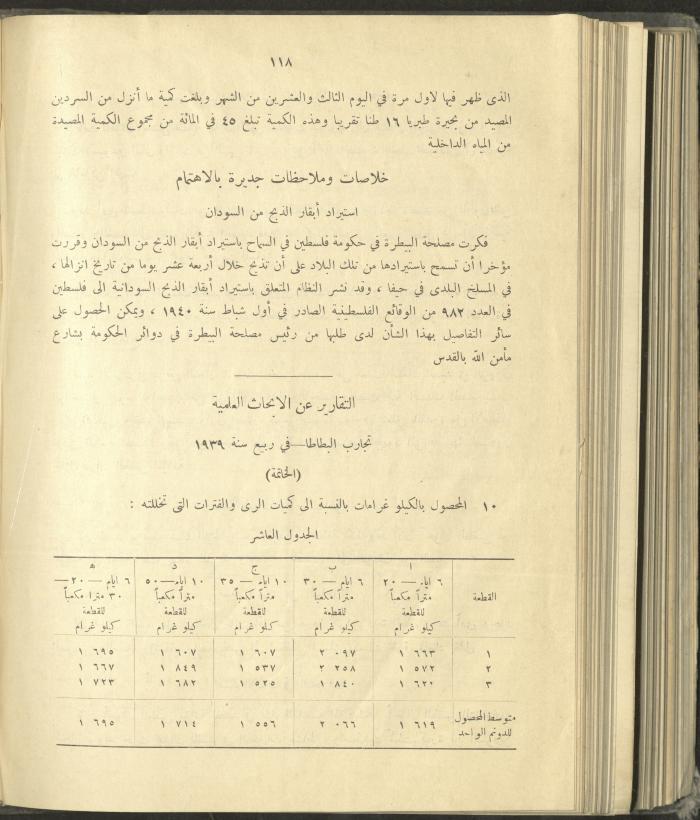 ١١٨
الذى ظهر فيها لاول مرة في اليوم الثالث والعشرين من الشهر وبلغت كمية ما أنزل من السردين
المصيد من بحيرة طبريا ١٦ طنا تقريبا وهذه الكمية تبلغ ٤٥ في المائة من مجموع الكمية المصيدة
من المياه الداخلية
خلاصات وملاحظات جديرة بالاهتمام
استيراد أبقار الذبح من السودان
فكرت مصلحة البيطرة في حكومة فلسطين في السماح باستيراد أبقار الذبح من السودان وقررت
مؤخرا أن تسمح باستيرادها من تلك البلاد على أن تذبح خلال أربعة عشر يوما من تاريخ انزالها ،
في المسلخ البلدى في حيفا ، وقد نشر النظام المتعلق باستيراد أبقار الذبح السودانية الى فلسطين
في العدد ٩٨٢ من الوقائع الفلسطينية الصادر في أول شباط سنة ١٩٤٠ ، ويمكن الحصول على
سائر التفاصيل بهذا الشأن لدى طلبها من رئيس مصلحة البيطرة في دوائر الحكومة بشارع
مأمن الله بالقدس
التقارير عن الابحاث العلمية
تجارب البطاطا—في ربيع سنة ١٩٣٩
(الخاتمة)
١٠ المحصول بالكيلو غرامات بالنسبة الى كميات الرى والفترات التى تخللته :
الجدول العاشر
ا ب ج د ه
القطعة ٦ ايام — ٢٠ ٦ ايام — ٣٠ ١٠ ايام — ٣٥ ١٠ ايام—٥٠ ٦ ايام — ٢٠—
متراً مكعباً متراً مكعباً متراً مكعباً متراً مكعباً ٣٠ متراً مكعباً
للقطعة للقطعة للقطعة للقطعة للقطعة
كيلو غرام كيلو غرام كيلو غرام كيلو غرام كيلو غرام
١ ١ ٦٦٣ ٢ ٠٩٧ ١ ٦٠٧ ١ ٦٠٧ ١ ٦٩٥
٢ ١ ٥٧٢ ٢ ٢٥٨ ١ ٥٣٧ ١ ٨٤٩ ١ ٦٦٧
٣ ١ ٦٢٠ ١ ٨٤٠ ١ ٥٢٥ ١ ٦٨٢ ١ ٧٢٣
متوسط المحصول
للدونم الواحد ١ ٦١٩ ٢ ٠٦٦ ١ ٥٥٦ ١ ٧١٤ ١ ٦٩٥